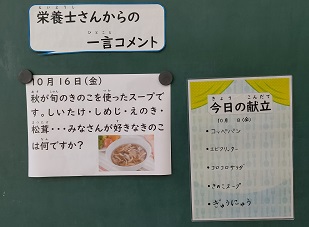 栄養士さんからの
一言コメント
10月16日(金)
秋が旬のきのこを使ったスープで
す。しいたけ・しめじ・えのき・
松茸・・・みなさんが好きなきのこ
は何ですか?
今日の献立
10月 日(金)
・コッペパン
・エビフリッター
・コロコロサラダ
・きのこスープ
・ぎゅうにゅう